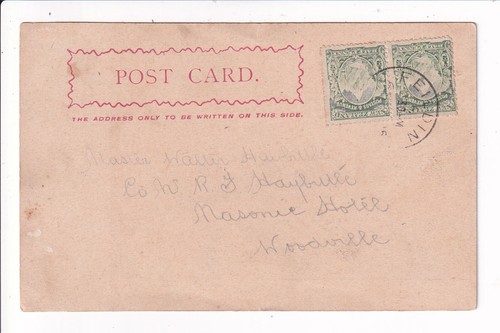 POST CARD.
THE ADDRESS ONLY TO BE WRITTEN ON THIS SIDE.
FEILDIN
Master Walter Haybittle
C/o Mr R. J Haybittle
Masonic Hotel
Woodville